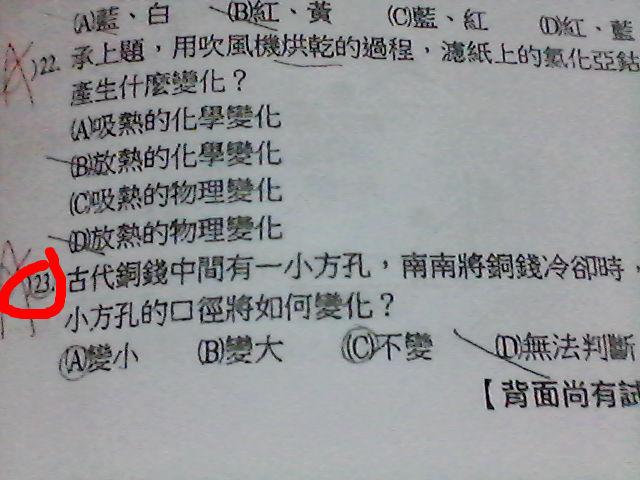 (A)藍、白 (B)紅、黃 (C)藍、紅 (D)紅、藍
)22. 承上題，用吹風機烘乾的過程，濾紙上的氯化亞鈷
產生什麼變化？
(A)吸熱的化學變化
(B)放熱的化學變化
(C)吸熱的物理變化
(D)放熱的物理變化
)23. 古代銅錢中間有一小方孔，南南將銅錢冷卻時，
小方孔的口徑將如何變化？
(A)變小 (B)變大 (C)不變 (D)無法判斷
【背面尚有試